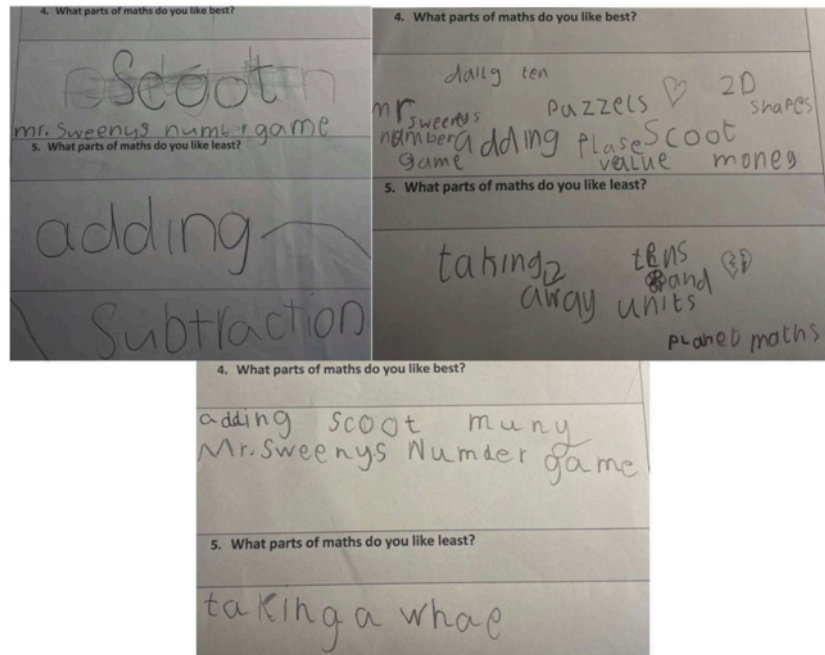 4. What parts of maths do you like best?
Scoot
mr. Sweenys number game
5. What parts of maths do you like least?
adding
Subtraction
4. What parts of maths do you like best?
daily ten
puzzels 2D shapes
mr sweenys number game
adding plase value Scoot money
5. What parts of maths do you like least?
taking away
tens and units
planet maths
4. What parts of maths do you like best?
adding scoot muny
Mr. Sweenys Number game
5. What parts of maths do you like least?
taking a whae